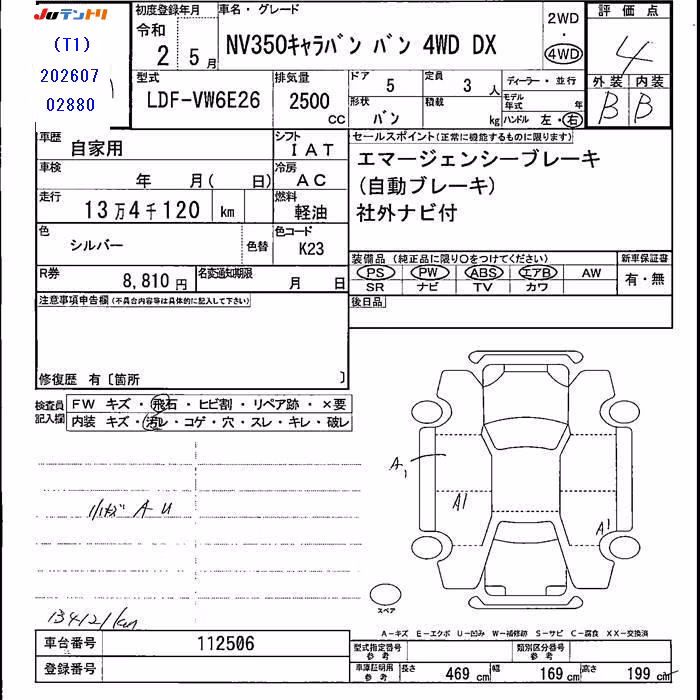 JUテントリ
(T1)
202607
02880
初度登録年月
令和
2 5月
車名・グレード
NV350キャラバン バン 4WD DX
2WD
・
4WD
評価点
4
外装 内装
B B
型式
LDF-VW6E26
排気量
2500
CC
ドア 5
定員 3 人
形状 バン
積載 kg
ディーラー・並行
モデル年式 年
ハンドル 左・右
車歴 自家用
シフト IAT
車検 年 月( 日)
冷房 AC
走行 13万4千120 km
燃料 軽油
色 シルバー 色替
色コード K23
R券 8,810円
名変通知期限 月 日
セールスポイント(正常に機能するものに限ります)
エマージェンシーブレーキ
(自動ブレーキ)
社外ナビ付
装備品(純正品に限り○をつけてください)
PS PW ABS エアB AW
SR ナビ TV カワ
新車保証書
有・無
後日品
注意事項申告欄(不具合内容等は具体的に記入して下さい)
修復歴 有〔箇所 〕
検査員記入欄
FW キズ・飛石・ヒビ割・リペア跡・×要
内装 キズ・汚レ・コゲ・穴・スレ・キレ・破レ
A1
A1
A1
小傷 A U
134121km
スペア
A-キズ E-エクボ U-凹み W-補修跡 S-サビ C-腐食 XX-交換済
車台番号 112506
登録番号
型式指定番号 参考
類別区分番号 参考
車庫証明用 参考
長さ 469 cm 幅 169 cm 高さ 199 cm